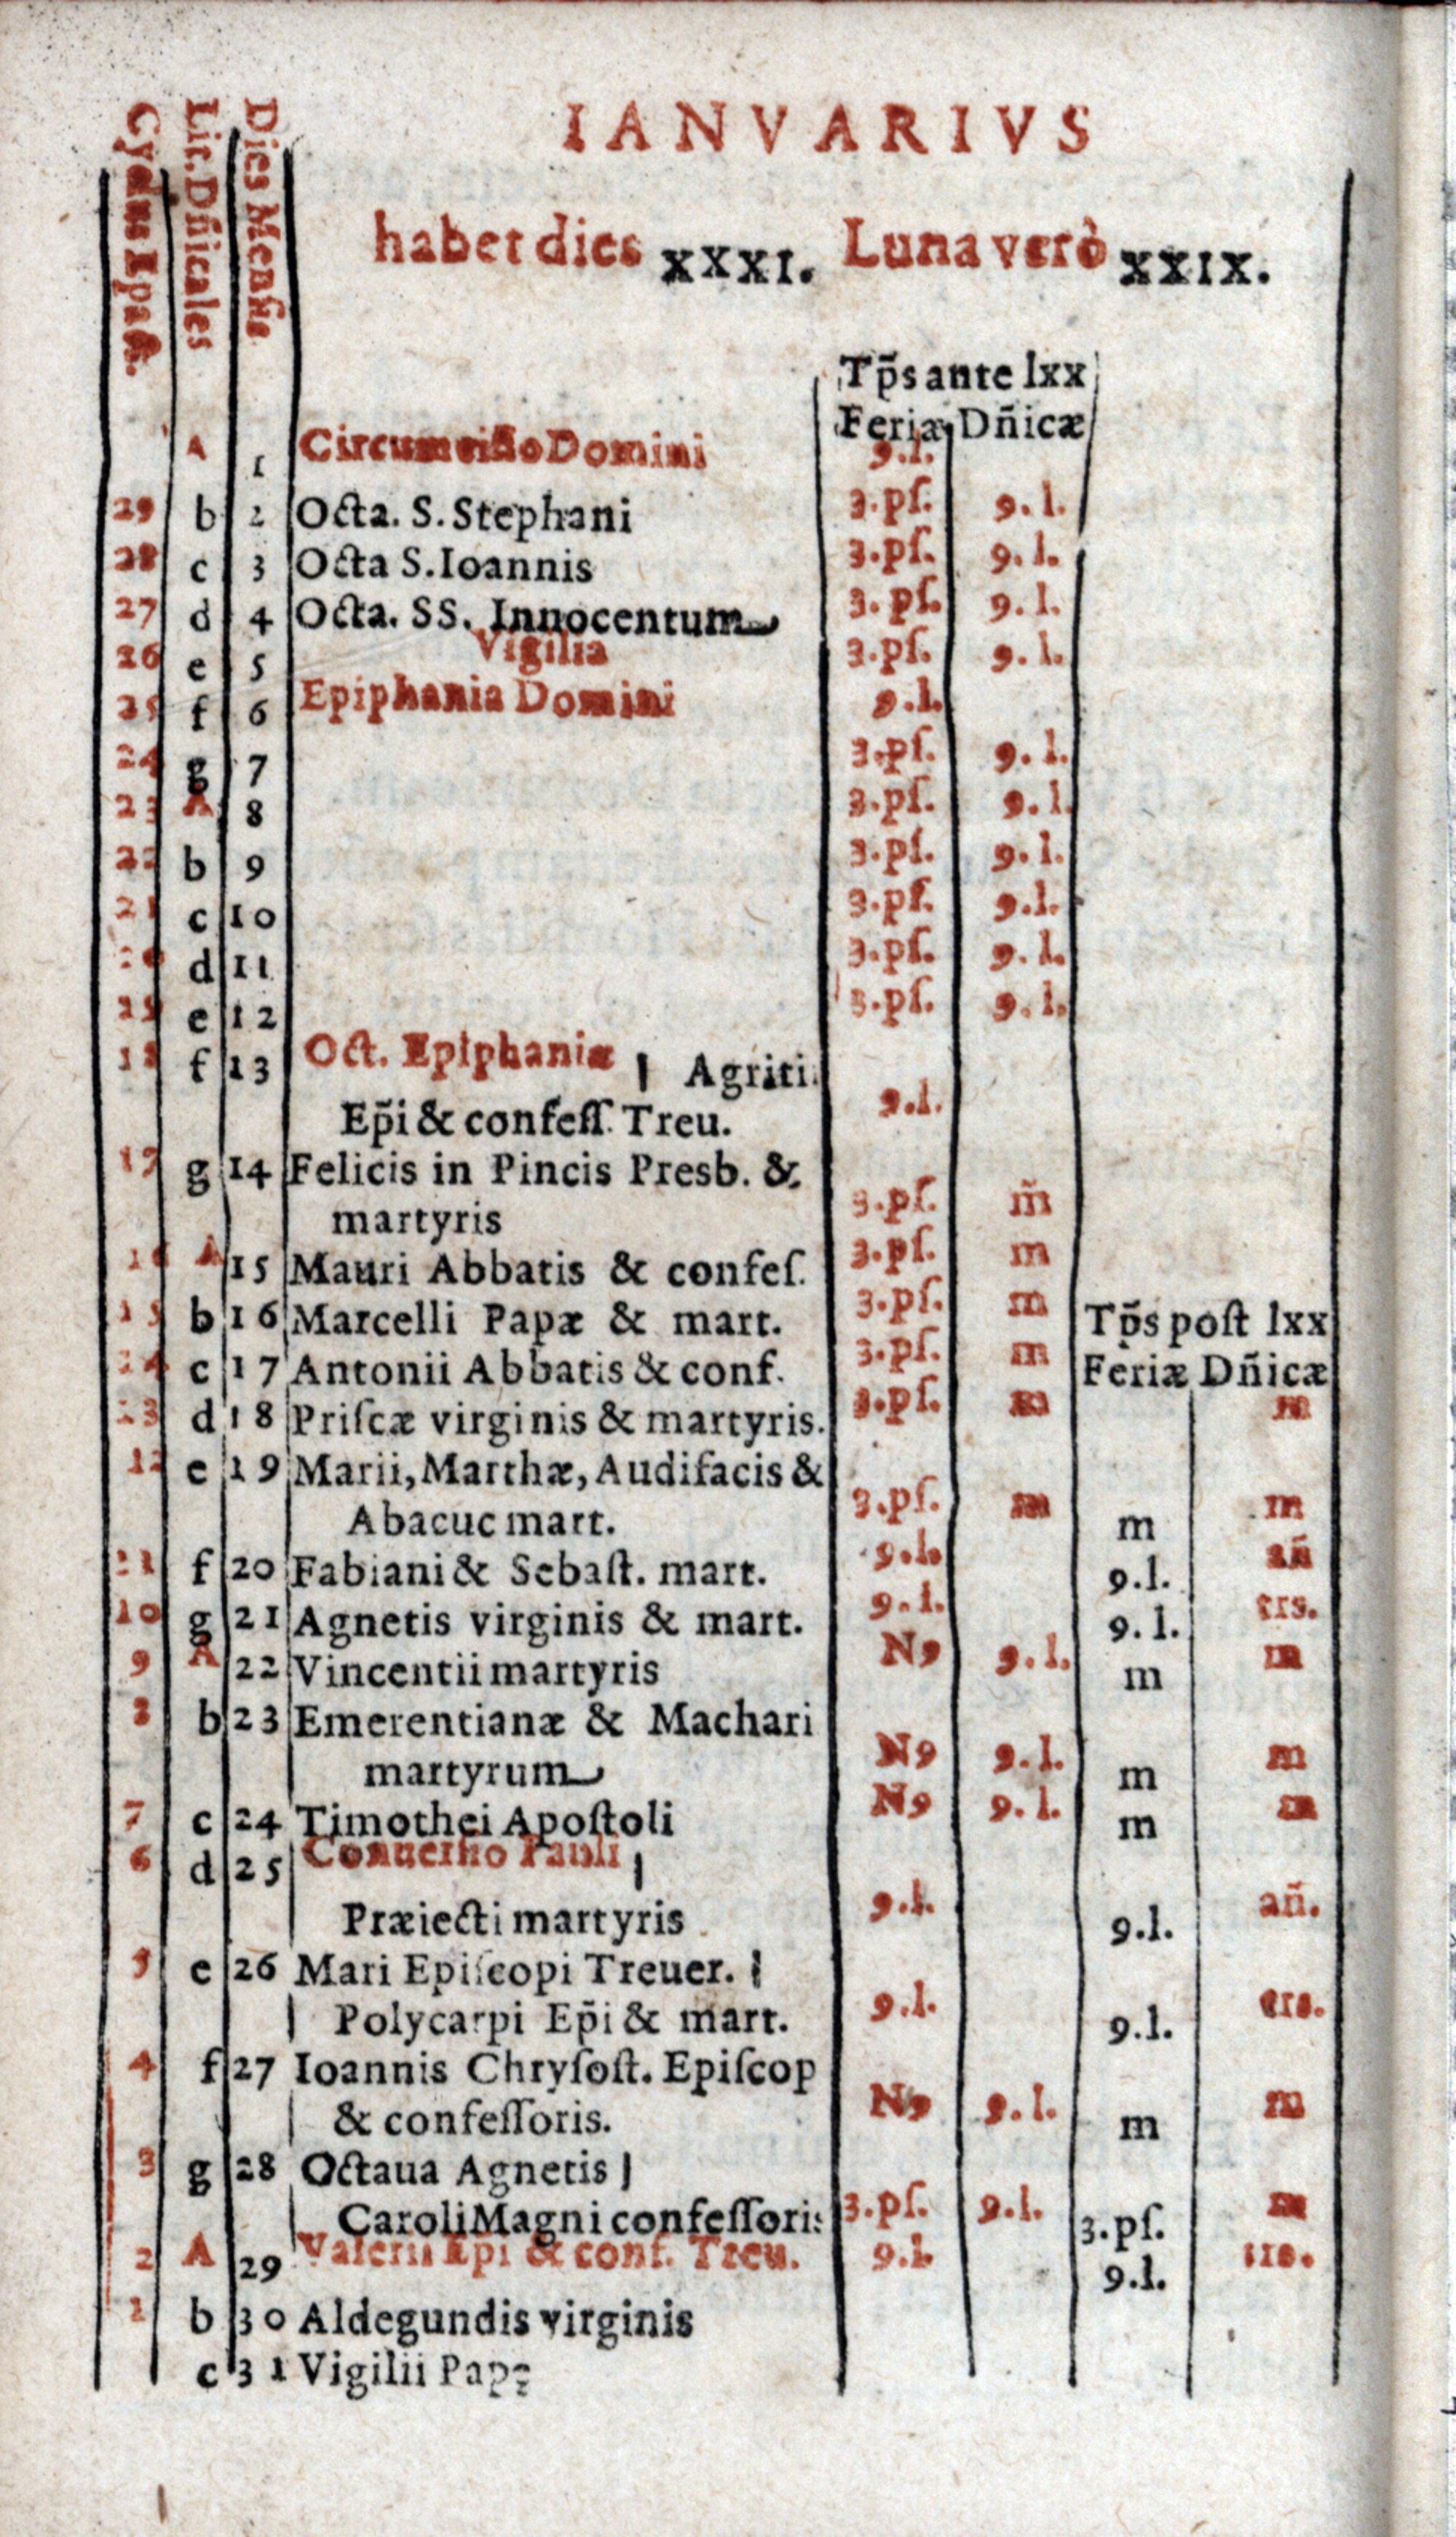 IANVARIVS
Cyclus Epact.
Lit. Dñicales
Dies Mensis
habet dies XXXI. Luna verò XXIX.
Tp̃s ante lxx
Feriæ Dñicæ
A 1 Circumcisio Domini 9.l.
29 b 2 Octa. S. Stephani 3.pſ. 9.l.
28 c 3 Octa S. Ioannis 3.pſ. 9.l.
27 d 4 Octa. SS. Innocentum 3.pſ. 9.l.
26 e 5 Vigilia 3.pſ. 9.l.
25 f 6 Epiphania Domini 9.l.
24 g 7 3.pſ. 9.l.
23 A 8 3.pſ. 9.l.
22 b 9 3.pſ. 9.l.
21 c 10 3.pſ. 9.l.
20 d 11 3.pſ. 9.l.
e 12 3.pſ. 9.l.
18 f 13 Oct. Epiphaniæ | Agriti
Ep̃i & confeſſ. Treu. 9.l.
17 g 14 Felicis in Pincis Presb. &
martyris 3.pſ. m̃
16 A 15 Mauri Abbatis & confeſ. 3.pſ. m
15 b 16 Marcelli Papæ & mart. 3.pſ. m Tp̃s poſt lxx
c 17 Antonii Abbatis & conf. 3.pſ. m Feriæ Dñicæ
d 18 Priſcæ virginis & martyris. 3.pſ. m m
12 e 19 Marii, Marthæ, Audifacis &
Abacuc mart. 3.pſ. m m m
f 20 Fabiani & Sebaſt. mart. 9.l. 9.l. añ
10 g 21 Agnetis virginis & mart. 9.l. 9.l. trs.
9 A 22 Vincentii martyris N9 9.l. m m
8 b 23 Emerentianæ & Machari
martyrum N9 9.l. m m
7 c 24 Timothei Apoſtoli N9 9.l. m m
6 d 25 Conuerſio Pauli |
Præiecti martyris 9.l. 9.l. añ.
5 e 26 Mari Epiſcopi Treuer. |
Polycarpi Ep̃i & mart. 9.l. 9.l. trs.
4 f 27 Ioannis Chryſoſt. Epiſcop
& confeſſoris. N9 9.l. m m
3 g 28 Octaua Agnetis |
Caroli Magni confeſſoris 3.pſ. 9.l. 3.pſ. m
2 A 29 Valerii Epi & conf. Treu. 9.l. 9.l. trs.
1 b 30 Aldegundis virginis
c 31 Vigilii Papę